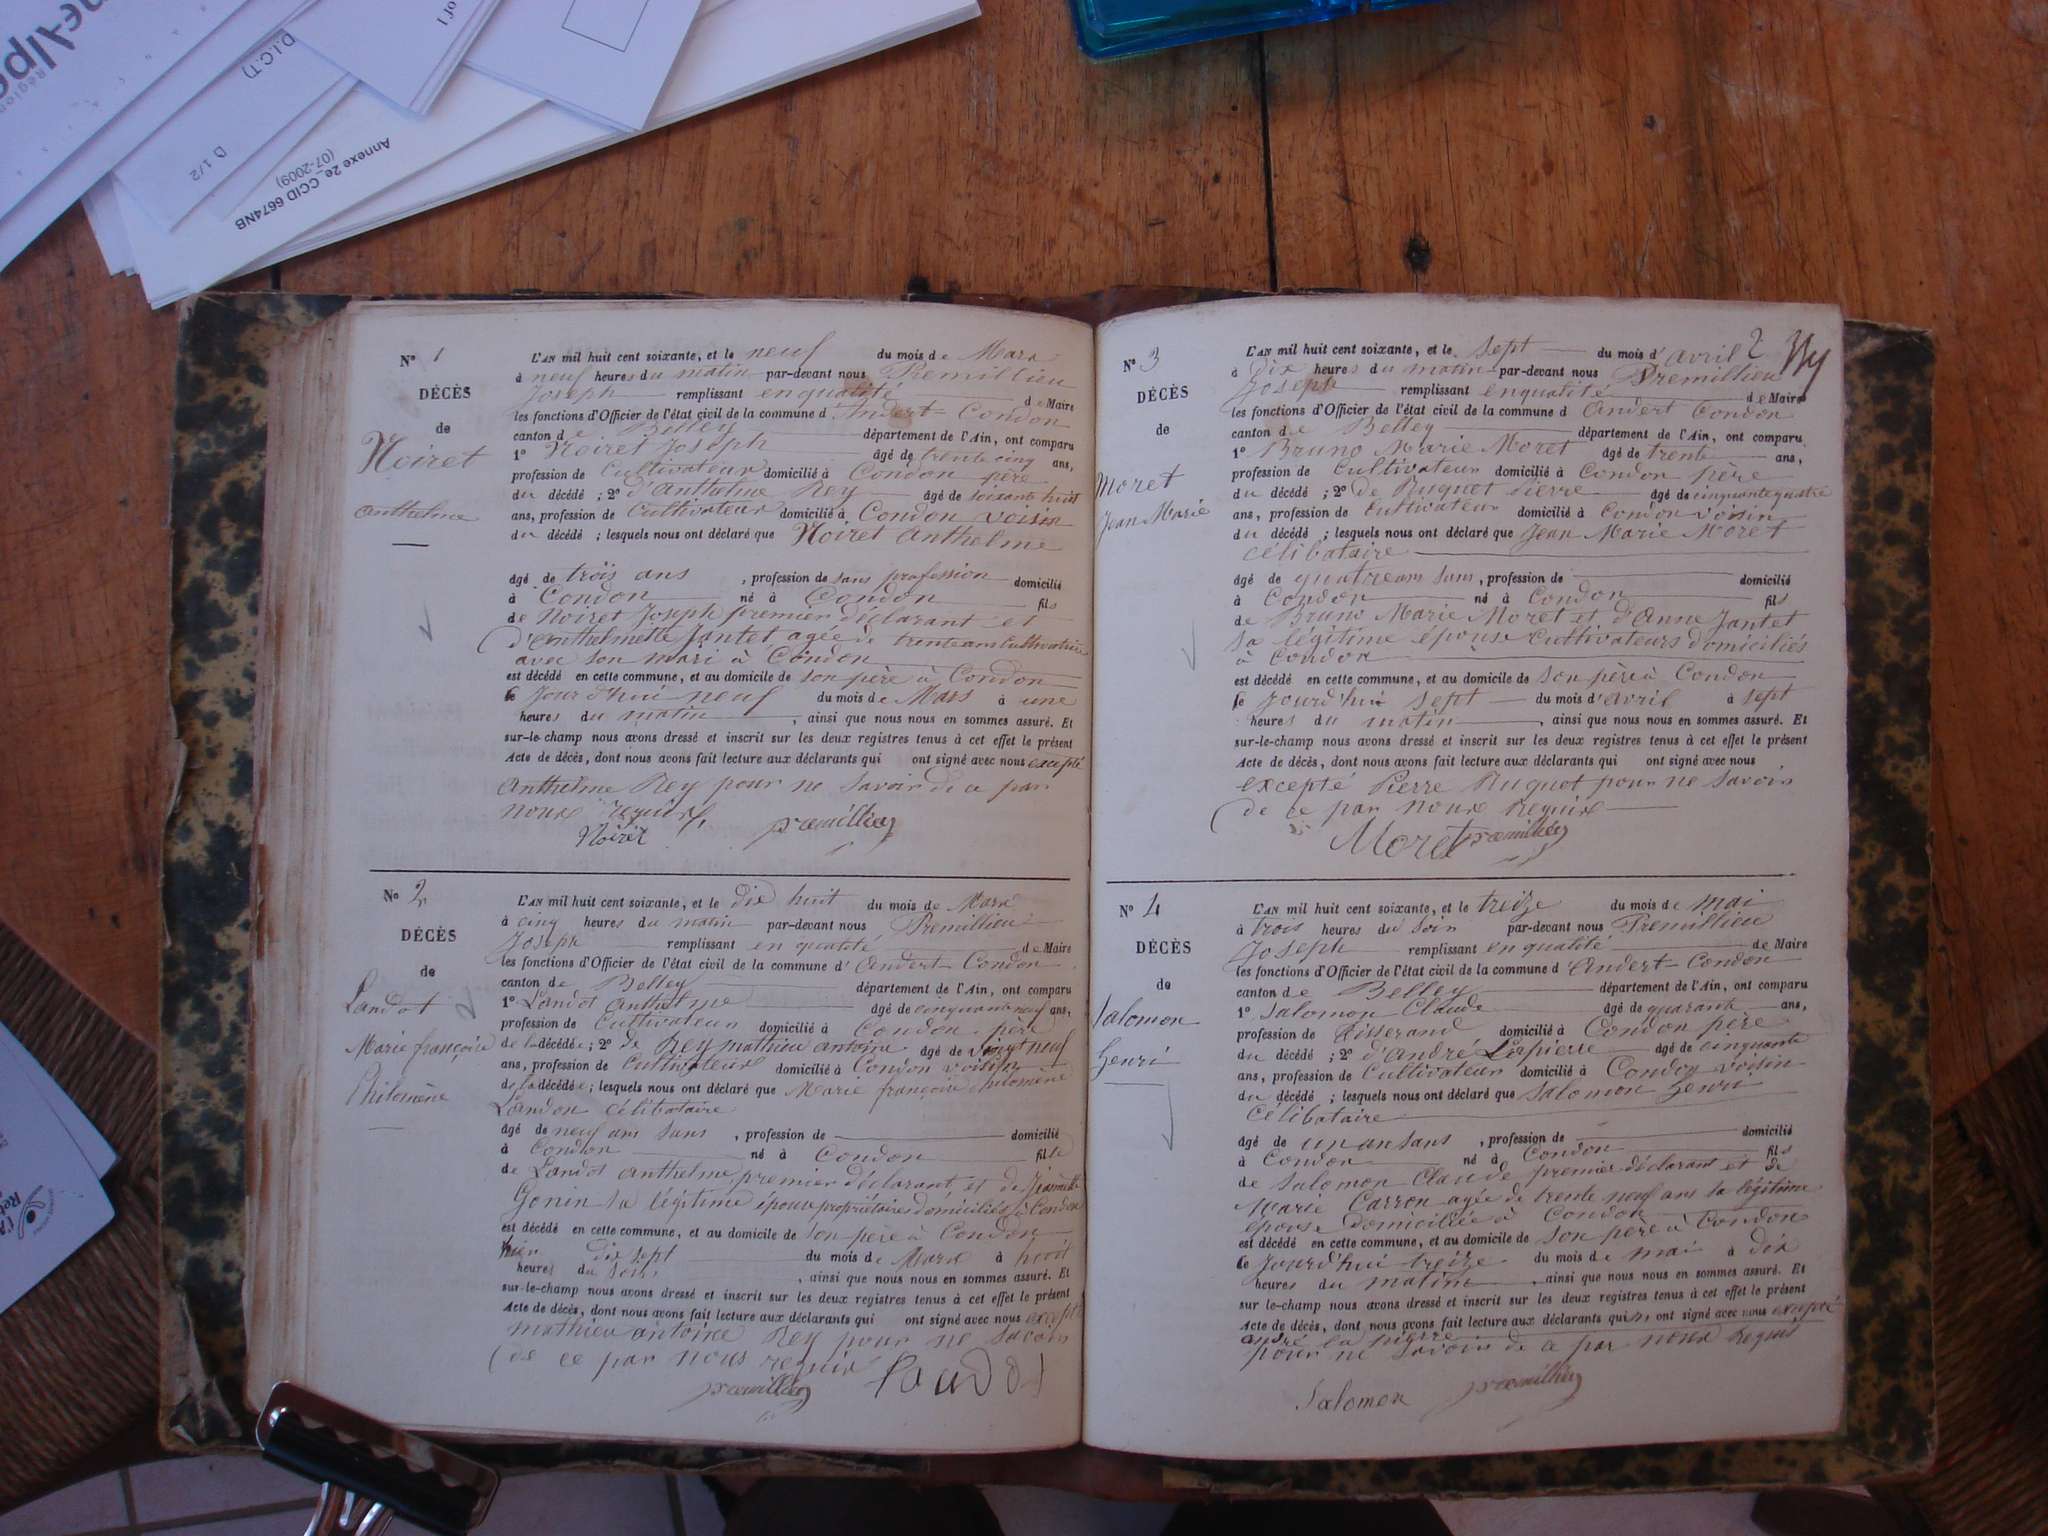 ne-Alpe
Région
D.I.C.T)
of 1
D 1/2
Annexe 2e CCID 6674NB
(07-2009)
N° 1
DÉCÈS
de
Noiret
Anthelme
L'AN mil huit cent soixante, et le neuf du mois de Mars
à neuf heures du matin par-devant nous Premillieu
Joseph remplissant en qualité de Maire
les fonctions d'Officier de l'état civil de la commune d'Andert-Condon
canton de Belley département de l'Ain, ont comparu
1° Noiret Joseph âgé de trente cinq ans,
profession de Cultivateur domicilié à Condon père
du décédé ; 2° d'Anthelme Rey âgé de soixante huit
ans, profession de Cultivateur domicilié à Condon voisin
du décédé ; lesquels nous ont déclaré que Noiret Anthelme
âgé de trois ans , profession de sans profession domicilié
à Condon né à Condon fils
de Noiret Joseph premier déclarant et
d'Anthelmette Jantet agée de trente ans Cultivatrice
avec son mari à Condon
est décédé en cette commune, et au domicile de son père à Condon
le Jourd'hui neuf du mois de Mars à une
heures du matin , ainsi que nous nous en sommes assuré. Et
sur-le-champ nous avons dressé et inscrit sur les deux registres tenus à cet effet le présent
Acte de décès, dont nous avons fait lecture aux déclarants qui ont signé avec nous excepté
Anthelme Rey pour ne savoir de ce par
nous requis
Noiret premillieu
N° 2
DÉCÈS
de
Landot
Marie françoise
Philomène
L'AN mil huit cent soixante, et le dix huit du mois de Mars
à cinq heures du matin par-devant nous Premillieu
Joseph remplissant en qualité de Maire
les fonctions d'Officier de l'état civil de la commune d'Andert-Condon
canton de Belley département de l'Ain, ont comparu
1° Landot Anthelme âgé de cinquante neuf ans,
profession de Cultivateur domicilié à Condon père
de la décédée ; 2° de Rey mathieu antoine âgé de vingt neuf
ans, profession de Cultivateur domicilié à Condon voisin
de la décédée ; lesquels nous ont déclaré que Marie françoise philomène
Landon célibataire
âgé de neuf ans sans , profession de domicilié
à Condon né à Condon fille
de Landot Anthelme premier déclarant et de Jeannette
Gonin sa légitime épouse propriétaires domiciliés à Condon
est décédé en cette commune, et au domicile de son père à Condon
hier dix sept du mois de Mars à huit
heures du soir , ainsi que nous nous en sommes assuré. Et
sur-le-champ nous avons dressé et inscrit sur les deux registres tenus à cet effet le présent
Acte de décès, dont nous avons fait lecture aux déclarants qui ont signé avec nous excepté
mathieu antoine Rey pour ne savoir
de ce par nous requis Landot
premillieu
2
N° 3
DÉCÈS
de
Moret
Jean Marie
L'AN mil huit cent soixante, et le sept du mois d'avril
à dix heures du matin par-devant nous Premillieu
Joseph remplissant en qualité de Maire
les fonctions d'Officier de l'état civil de la commune d Andert Condon
canton de Belley département de l'Ain, ont comparu
1° Bruno Marie Moret âgé de trente ans,
profession de Cultivateur domicilié à Condon père
du décédé ; 2° de Ruquet Pierre âgé de cinquante quatre
ans, profession de Cultivateur domicilié à Condon voisin
du décédé ; lesquels nous ont déclaré que Jean Marie Moret
célibataire
âgé de quatre ans sans , profession de domicilié
à Condon né à Condon fils
de Bruno Marie Moret et d'Anne Jantet
sa légitime épouse Cultivateurs domiciliés
à Condon
est décédé en cette commune, et au domicile de son père à Condon
le Jourd'hui sept du mois d'avril à sept
heures du matin , ainsi que nous nous en sommes assuré. Et
sur-le-champ nous avons dressé et inscrit sur les deux registres tenus à cet effet le présent
Acte de décès, dont nous avons fait lecture aux déclarants qui ont signé avec nous
excepté Pierre Ruquet pour ne savoir
de ce par nous requis
Moret premillieu
N° 4
DÉCÈS
de
Salomon
henri
L'AN mil huit cent soixante, et le treize du mois de mai
à trois heures du soir par-devant nous Premillieu
Joseph remplissant en qualité de Maire
les fonctions d'Officier de l'état civil de la commune d Andert-Condon
canton de Belley département de l'Ain, ont comparu
1° Salomon Claude âgé de quarante ans,
profession de Tisserand domicilié à Condon père
du décédé ; 2° d'André Lapierre âgé de cinquante
ans, profession de Cultivateur domicilié à Condon voisin
du décédé ; lesquels nous ont déclaré que Salomon henri
célibataire
âgé de un an sans , profession de domicilié
à Condon né à Condon fils
de Salomon Claude premier déclarant et de
Marie Carron agée de trente neuf ans sa légitime
épouse domiciliée à Condon
est décédé en cette commune, et au domicile de son père à Condon
le Jourd'hui treize du mois de mai à dix
heures du matin , ainsi que nous nous en sommes assuré. Et
sur le-champ nous avons dressé et inscrit sur les deux registres tenus à cet effet le présent
Acte de décès, dont nous avons fait lecture aux déclarants qui ont signé avec nous excepté
andré la pierre
pour ne savoir de ce par nous requis
Salomon premillieu